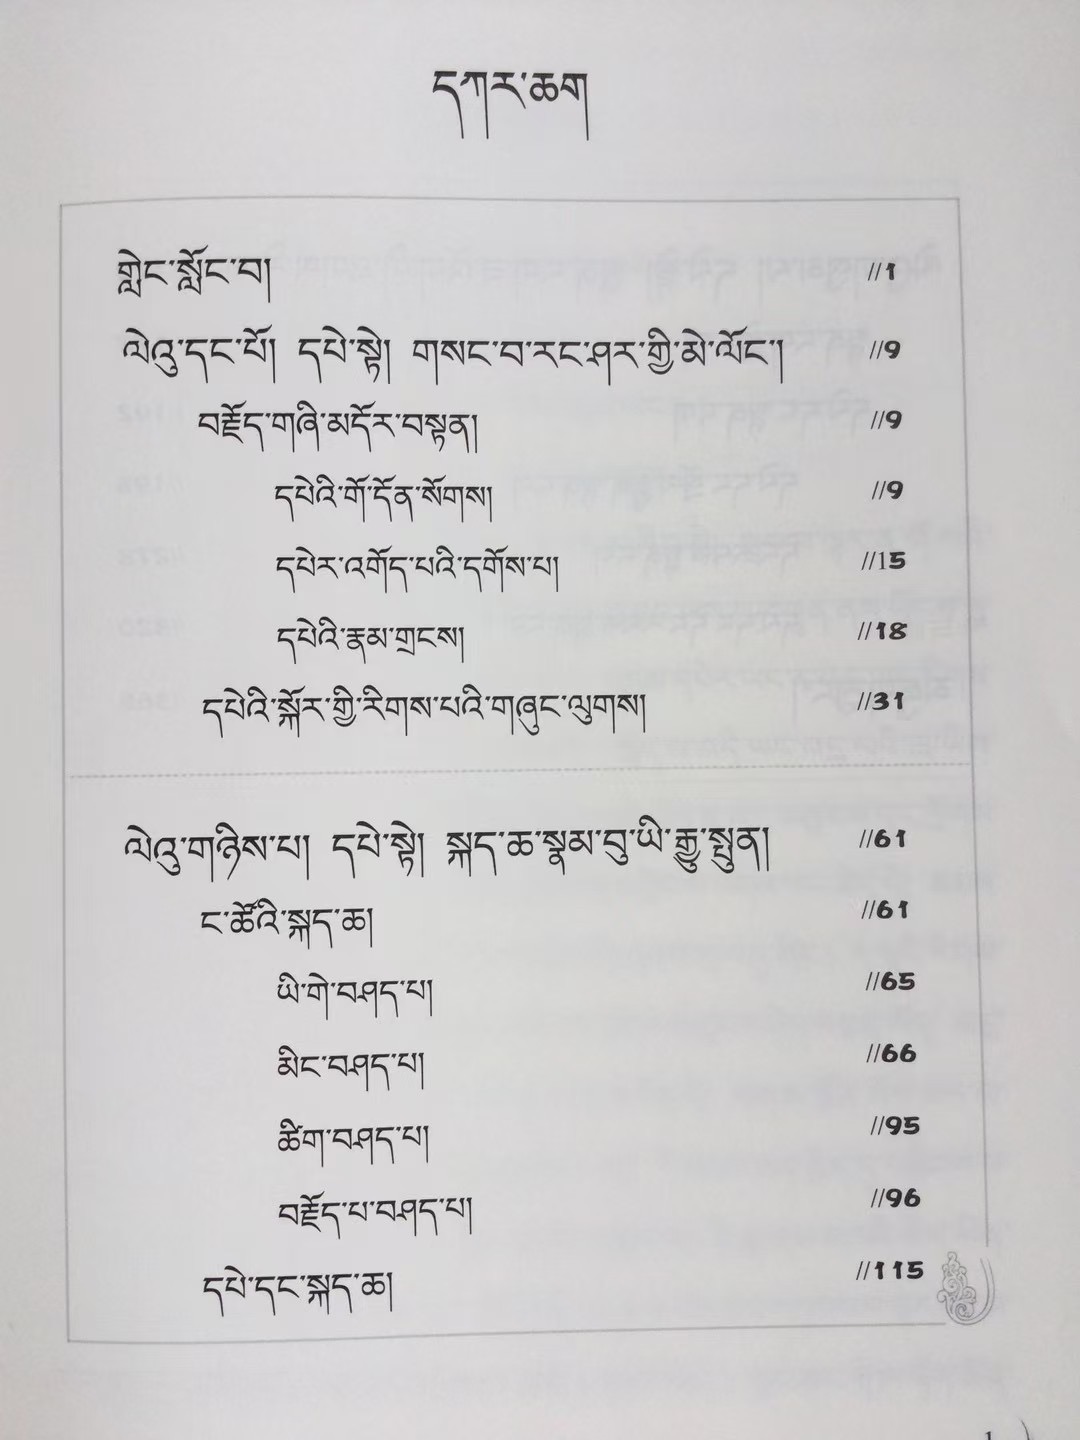 དཀར་ཆག
གླེང་སློང་བ། //1
ལེའུ་དང་པོ། དཔེ་སྟེ། གསང་བ་རང་ཤར་གྱི་མེ་ལོང་། //9
བརྗོད་གཞི་མདོར་བསྟན། //9
དཔེའི་གོ་དོན་སོགས། //9
དཔེར་འགོད་པའི་དགོས་པ། //15
དཔེའི་རྣམ་གྲངས། //18
དཔེའི་སྐོར་གྱི་རིགས་པའི་གཞུང་ལུགས། //31
ལེའུ་གཉིས་པ། དཔེ་སྟེ། སྐད་ཆ་སྣམ་བུ་ཡི་རྒྱུ་སྤུན། //61
ང་ཚོའི་སྐད་ཆ། //61
ཡི་གེ་བཤད་པ། //65
མིང་བཤད་པ། //66
ཚིག་བཤད་པ། //95
བརྗོད་པ་བཤད་པ། //96
དཔེ་དང་སྐད་ཆ། //115
1